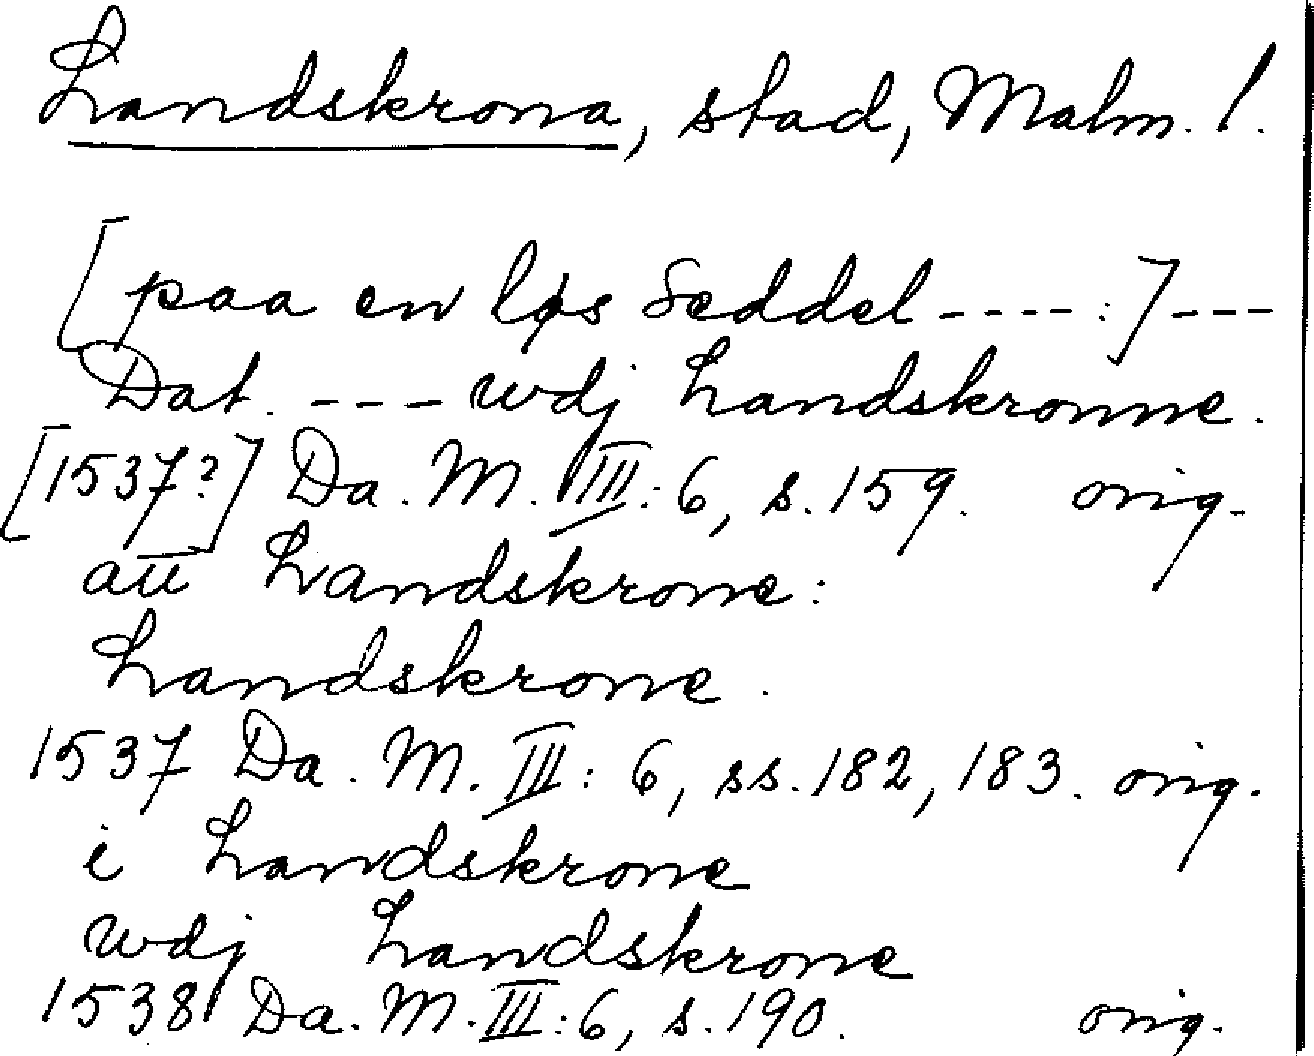 Landskrona, stad, Malm. l.
[paa en løs Seddel ----:] ---
Dat. --- wdj Landskronne.
[1537?] Da. M. III: 6, s. 159. orig.
aū Landskrone:
Landskrone.
1537 Da. M. III: 6, ss. 182, 183. orig.
i Landskrone
wdj Landskrone
1538 Da. M. III: 6, s. 190. orig.